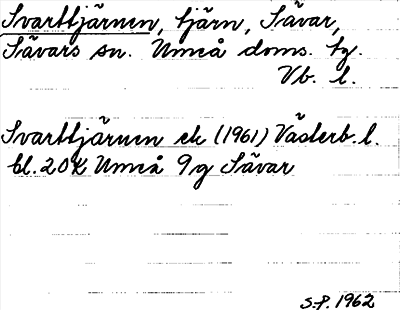 Svarttjärnen, tjärn, Sävar,
Sävars sn. Umeå doms. tg.
Vb. l.
Svarttjärnen ek (1961) Västerb. l.
bl. 20K Umeå 9g Sävar
S.P. 1962